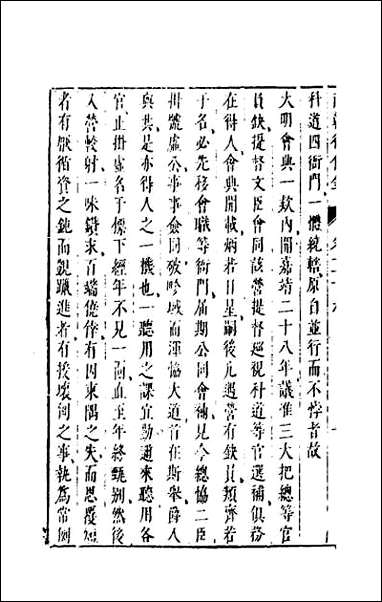 科道四衙門一體統轄原自並行而不悖者故
大明會典一款內開嘉靖二十八年議准三大把總等官
員缺提督文臣會同該營提督巡視科道等官選補俱務
在得人會典開載炳若日星嗣後凡遇營有缺員類齊若
干名必先移會職等衙門屆期公同會補見今總協二臣
掛號虛公事事僉同破畛域而渾協大道首在斯舉薛人
與共是亦得人之一機也一聽用之課宜勤邇來聽用各
官止掛虛名于標下經年不見一面直至年終甄別然後
入營較射一味鑽求百端僥倖有因東隅之失而思覆短
者有厭循資之鈍而覬躐進者有援壞河之事執為常例